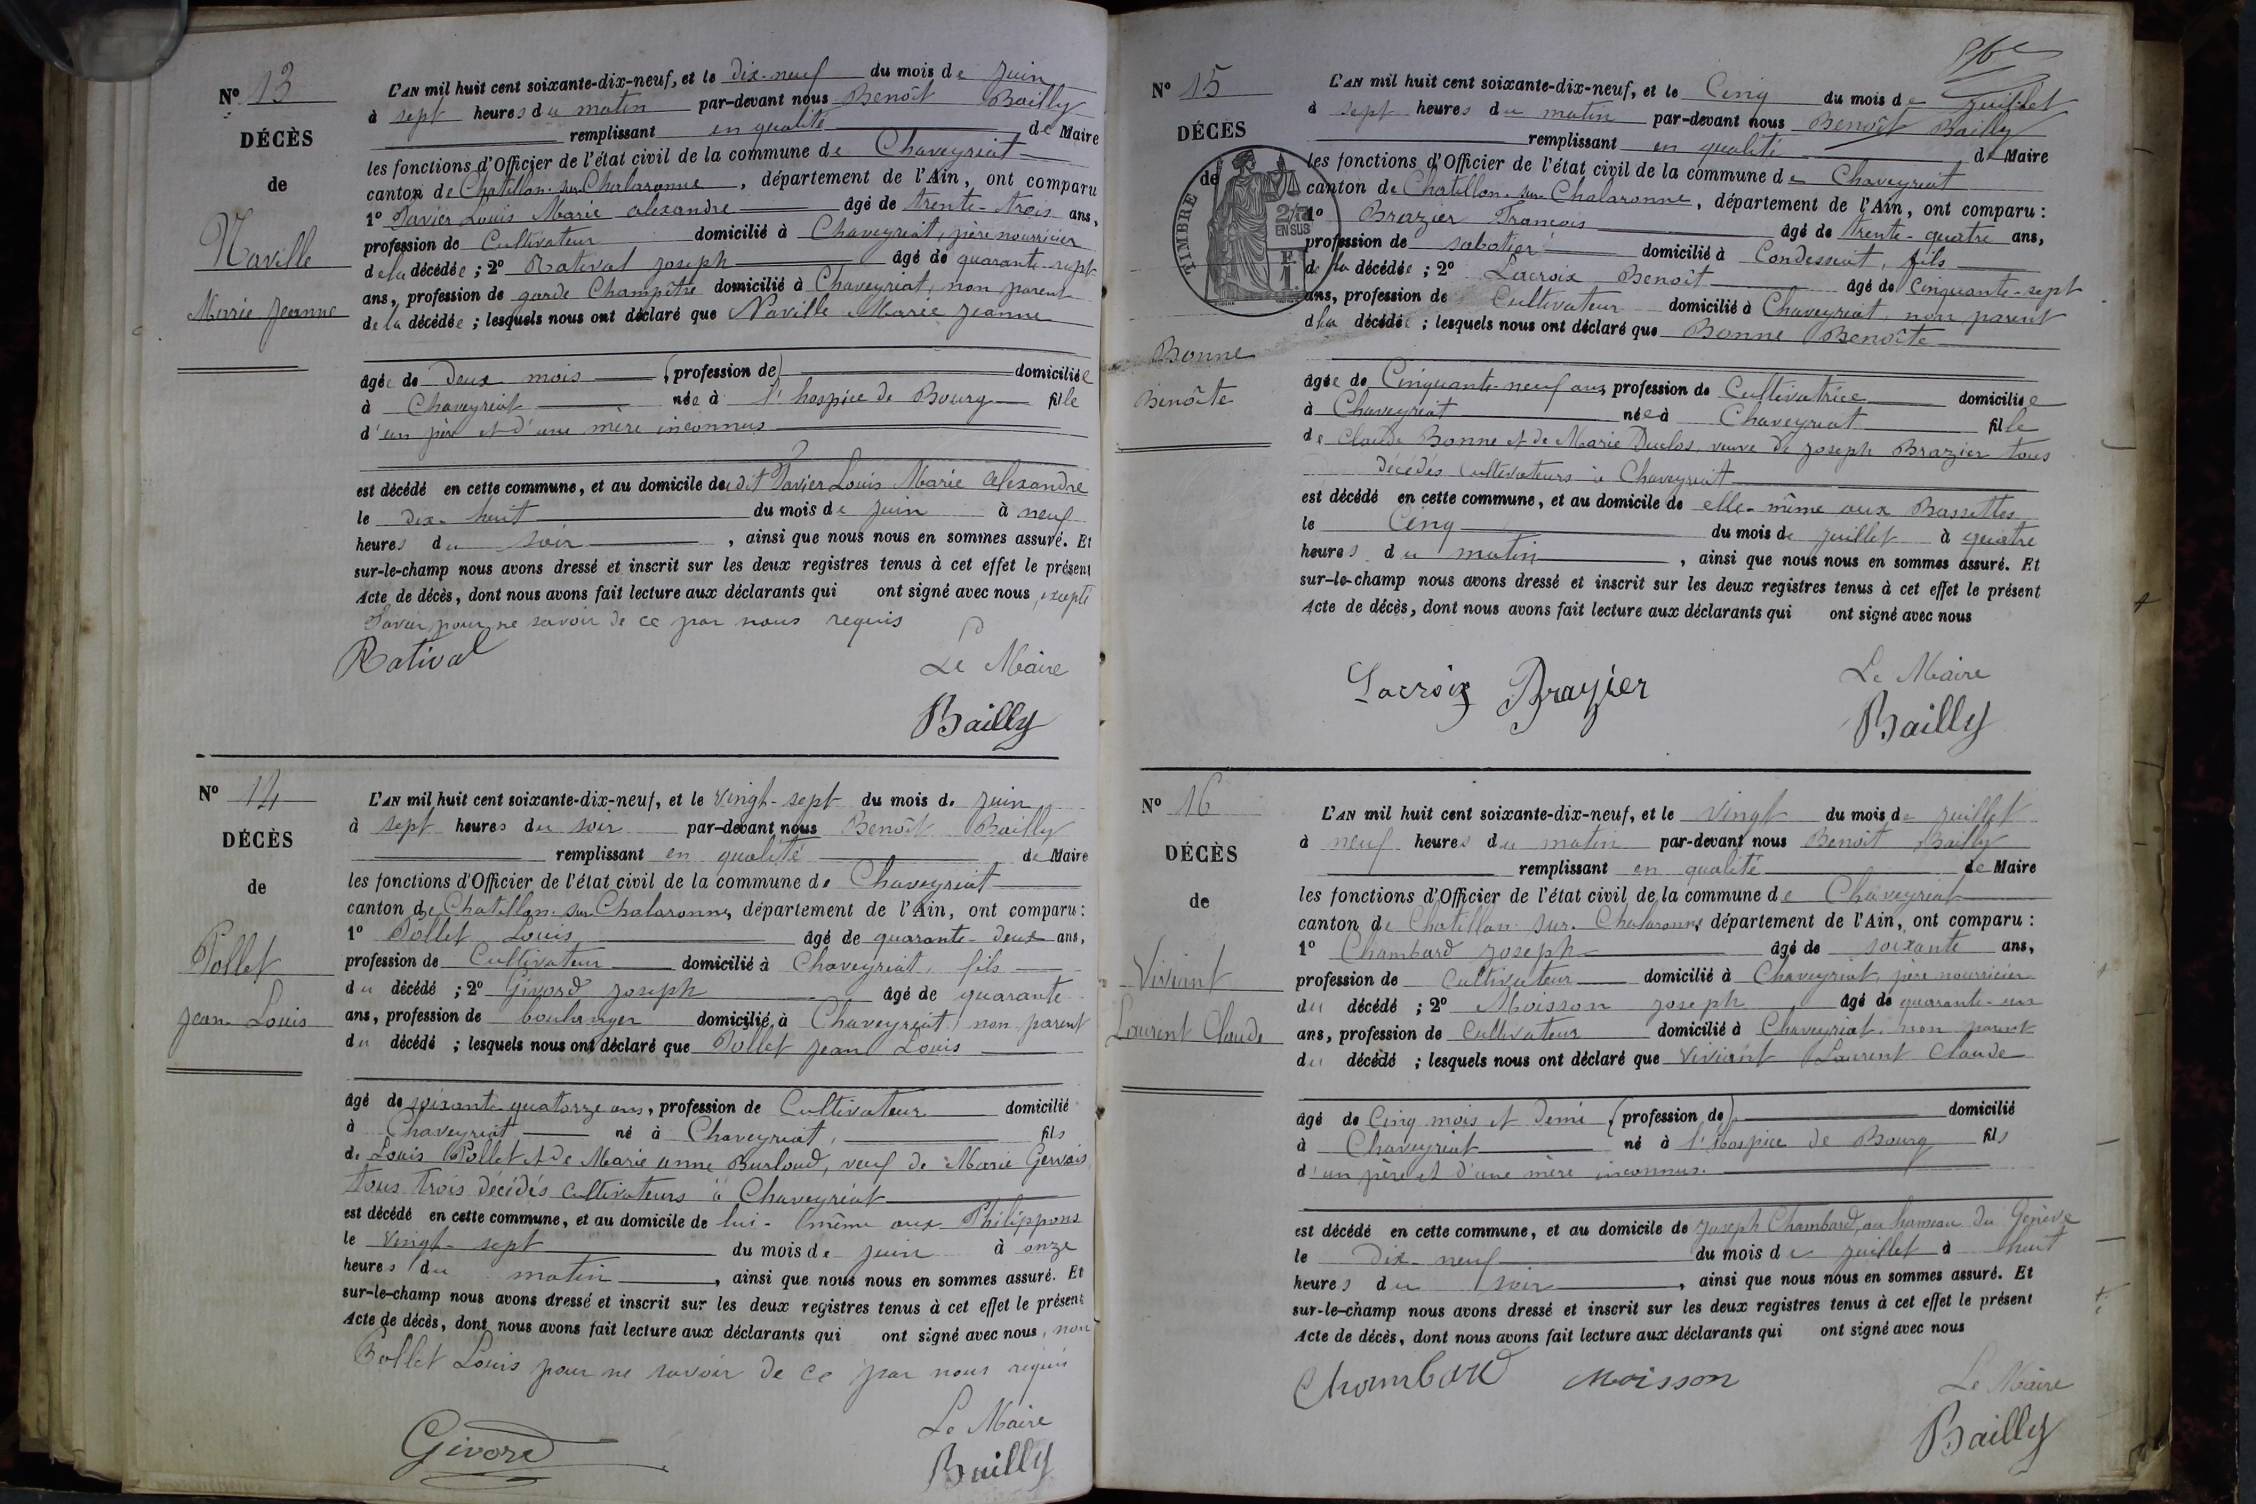 Nº 13
DÉCÈS
de
Naville
Marie Jeanne
L'AN mil huit cent soixante-dix-neuf, et le dix-neuf du mois de juin
à sept heures du matin par-devant nous Benoît Bailly
remplissant en qualité de Maire
les fonctions d'Officier de l'état civil de la commune de Chaveyriat
canton de Chatillon-sur-Chalaronne, département de l'Ain, ont comparu
1º Pavier Louis Marie alexandre âgé de trente-trois ans,
profession de Cultivateur domicilié à Chaveyriat, père nourricier
de la décédée ; 2º Rativat joseph âgé de quarante-sept
ans, profession de garde Champêtre domicilié à Chaveyriat, non parent
de la décédée ; lesquels nous ont déclaré que Naville Marie jeanne
âgée de deux mois (profession de) domiciliée
à Chaveyriat née à l'hospice de Bourg fille
d'un père et d'une mère inconnus
est décédé en cette commune, et au domicile dudit Pavier Louis Marie alexandre
le dix-huit du mois de juin à neuf
heures du soir, ainsi que nous nous en sommes assuré. Et
sur-le-champ nous avons dressé et inscrit sur les deux registres tenus à cet effet le présent
Acte de décès, dont nous avons fait lecture aux déclarants qui ont signé avec nous, excepté
pour ne savoir de ce par nous requis
Rativat
Le Maire
Bailly
Nº 14
DÉCÈS
de
Pollet
jean-Louis
L'AN mil huit cent soixante-dix-neuf, et le vingt-sept du mois de juin
à sept heures du soir par-devant nous Benoît Bailly
remplissant en qualité de Maire
les fonctions d'Officier de l'état civil de la commune de Chaveyriat
canton de Chatillon-sur-Chalaronne, département de l'Ain, ont comparu :
1º Pollet Louis âgé de quarante-deux ans,
profession de Cultivateur domicilié à Chaveyriat, fils
du décédé ; 2º Givord joseph âgé de quarante
ans, profession de boulanger domicilié à Chaveyriat, non parent
du décédé ; lesquels nous ont déclaré que Pollet jean Louis
âgé de soixante-quatorze ans, profession de Cultivateur domicilié
à Chaveyriat né à Chaveyriat, fils
de Louis Pollet et de Marie anne Burloud, veuf de Marie Gervais
tous trois décédés cultivateurs à Chaveyriat
est décédé en cette commune, et au domicile de lui-même aux Philippons
le vingt-sept du mois de juin à onze
heures du matin, ainsi que nous nous en sommes assuré. Et
sur-le-champ nous avons dressé et inscrit sur les deux registres tenus à cet effet le présent
Acte de décès, dont nous avons fait lecture aux déclarants qui ont signé avec nous, non
Pollet Louis pour ne savoir de ce par nous requis
Givord
Le Maire
Bailly
Nº 15
DÉCÈS
de
TIMBRE
2/10
EN SUS
F
1
Bonne
Benoîte
L'AN mil huit cent soixante-dix-neuf, et le Cinq du mois de juillet
à sept heures du matin par-devant nous Benoît Bailly
remplissant en qualité de Maire
les fonctions d'Officier de l'état civil de la commune de Chaveyriat
canton de Chatillon-sur-Chalaronne, département de l'Ain, ont comparu :
1º Brazier François âgé de trente-quatre ans,
profession de sabotier domicilié à Condessiat, fils
de la décédée ; 2º Lacroix Benoît âgé de cinquante-sept
ans, profession de Cultivateur domicilié à Chaveyriat, non parent
de la décédée ; lesquels nous ont déclaré que Bonne Benoîte
âgée de Cinquante-neuf ans, profession de Cultivatrice domiciliée
à Chaveyriat née à Chaveyriat fille
de Claude Bonne et de Marie Duclos, veuve de joseph Brazier tous
décédés cultivateurs à Chaveyriat
est décédé en cette commune, et au domicile de elle-même aux Bassettes
le Cinq du mois de juillet à quatre
heures du matin, ainsi que nous nous en sommes assuré. Et
sur-le-champ nous avons dressé et inscrit sur les deux registres tenus à cet effet le présent
Acte de décès, dont nous avons fait lecture aux déclarants qui ont signé avec nous
Lacroix Brazier
Le Maire
Bailly
Nº 16
DÉCÈS
de
Viviant
Laurent Claude
L'AN mil huit cent soixante-dix-neuf, et le vingt du mois de juillet
à neuf heures du matin par-devant nous Benoît Bailly
remplissant en qualité de Maire
les fonctions d'Officier de l'état civil de la commune de Chaveyriat
canton de Chatillon-sur-Chalaronne département de l'Ain, ont comparu :
1º Chambard joseph âgé de soixante ans,
profession de Cultivateur domicilié à Chaveyriat, père nourricier
du décédé ; 2º Moisson joseph âgé de quarante-un
ans, profession de Cultivateur domicilié à Chaveyriat, non parent
du décédé ; lesquels nous ont déclaré que Viviant Laurent Claude
âgé de Cinq mois et demi (profession de) domicilié
à Chaveyriat né à l'hospice de Bourg fils
d'un père et d'une mère inconnus.
est décédé en cette commune, et au domicile de joseph Chambard, au hameau du Genève
le dix-neuf du mois de juillet à huit
heures du soir, ainsi que nous nous en sommes assuré. Et
sur-le-champ nous avons dressé et inscrit sur les deux registres tenus à cet effet le présent
Acte de décès, dont nous avons fait lecture aux déclarants qui ont signé avec nous
Chambard Moisson
Le Maire
Bailly